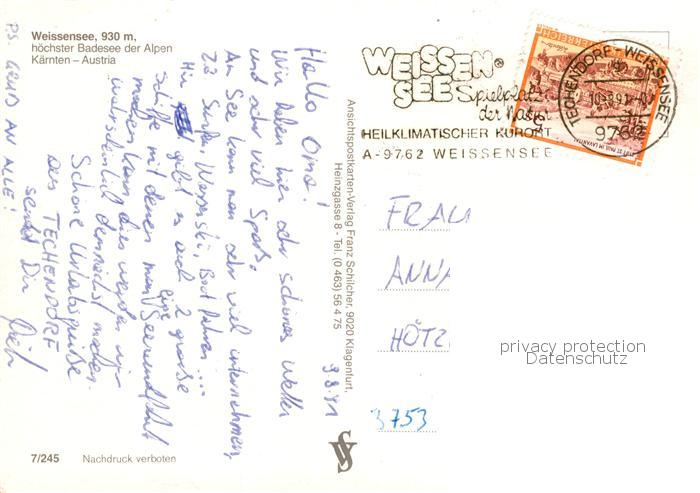 Weissensee, 930 m,
höchster Badesee der Alpen
Kärnten – Austria
Hallo Oma!
Wir haben hier sehr schönes Wetter
und sehr viel Spaß.
Am See kann man sehr viel unternehmen,
z.B. Surfen, Wasserski, Boot fahren ...
Hier gibt es auch 2 große
Schiffe mit denen man eine Seerundfahrt
machen kann, dies werden wir
wahrscheinlich demnächst machen.
Schöne Urlaubsgrüße
aus TECHENDORF
sendet Dir
PS. GRUß AN ALLE!
9.8.91
7/245 Nachdruck verboten
Ansichtspostkarten-Verlag Franz Schilcher, 9020 Klagenfurt,
Heinzgasse 8 - Tel. (0 463) 56 4 75
WEISSEN
SEE Spielplatz
der Natur
HEILKLIMATISCHER KURORT
A-9762 WEISSENSEE
TECHENDORF-WEISSENSEE
9762
FRAU
ANNA
HÖTZ
3753
privacy protection
Datenschutz